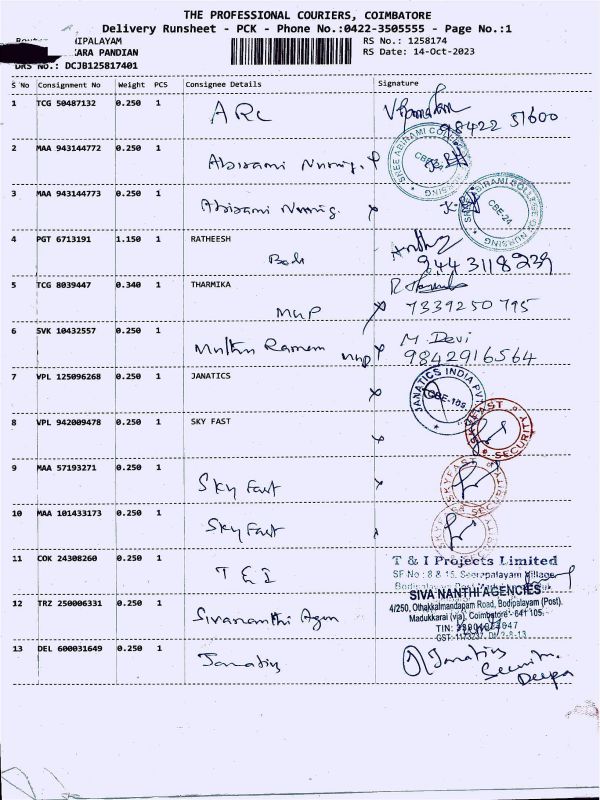 THE PROFESSIONAL COURIERS, COIMBATORE
Delivery Runsheet - PCK - Phone No.:0422-3505555 - Page No.:1
IPALAYAM RS No.: 1258174
KARA PANDIAN RS Date: 14-Oct-2023
DRS No.: DCJB125817401
S No Consignment No Weight PCS Consignee Details Signature
1 TCG 50487132 0.250 1 ARC 98422 51600
2 MAA 943144772 0.250 1 Abirami Nursing. SREE ABIRAMI COLLEGE NURSING
3 MAA 943144773 0.250 1 Abirami Nursing. SREE ABIRAMI COLLEGE OF NURSING CBE-24.
4 PGT 6713191 1.150 1 RATHEESH Bodi 9443118239
5 TCG 8039447 0.340 1 THARMIKA MNP 7339250795
6 SVK 10432557 0.250 1 Muthu Raman MNP M. Devi 9842916564
7 VPL 125096268 0.250 1 JANATICS JANATICS INDIA PVT CBE-109
8 VPL 942009478 0.250 1 SKY FAST SKYFAST SECURITY
9 MAA 57193271 0.250 1 Sky Fast SKYFAST SECURITY
10 MAA 101433173 0.250 1 Sky Fast
11 COK 24308260 0.250 1 T & I T & I Projects Limited
SF No : 8 & 15, Seerapalayam Village
12 TRZ 250006331 0.250 1 Sivananthi Agen SIVA NANTHI AGENCIES
4/250, Othakkalmandapam Road, Bodipalayam (Post).
Madukkarai (via), Coimbatore - 641 105.
TIN:
13 DEL 600031649 0.250 1 Janatics Janatics
Deepa